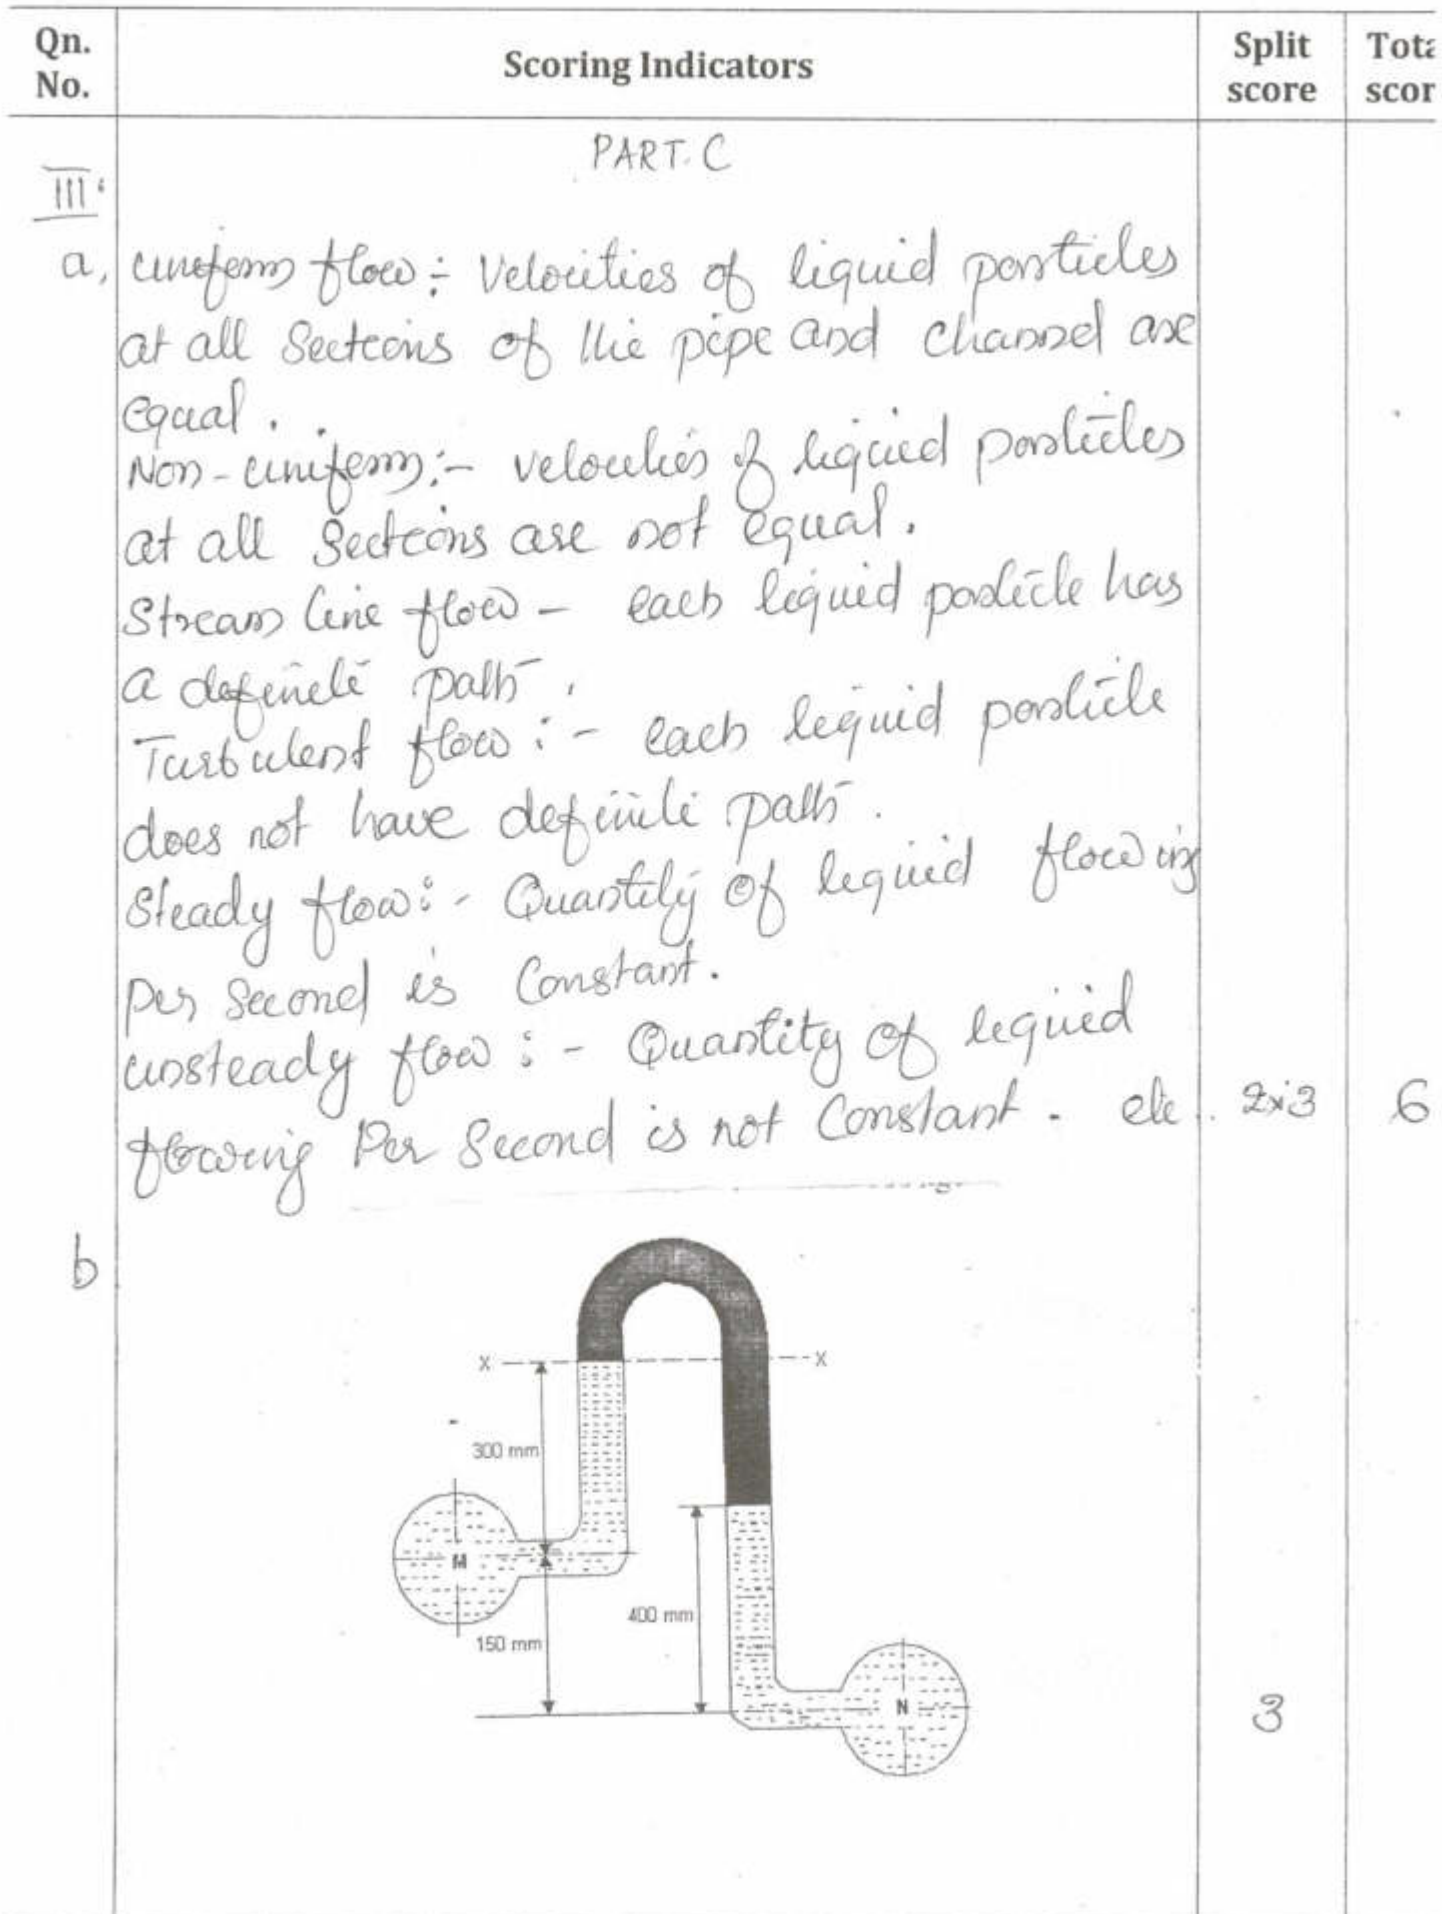 Qn. No. Scoring Indicators Split score Tota scor
PART. C
III
a, uniform flow :- Velocities of liquid particles
at all Sections of the pipe and channel are
equal.
Non-uniform:- velocities of liquid particles
at all Sections are not equal.
Stream line flow - each liquid particle has
a definite path.
Turbulent flow :- each liquid particle
does not have definite path.
Steady flow :- Quantity of liquid flowing
Per Second is Constant.
unsteady flow :- Quantity of liquid
flowing Per Second is not Constant. etc. 2x3 6
b
X X
300 mm
M
400 mm
150 mm
N
3